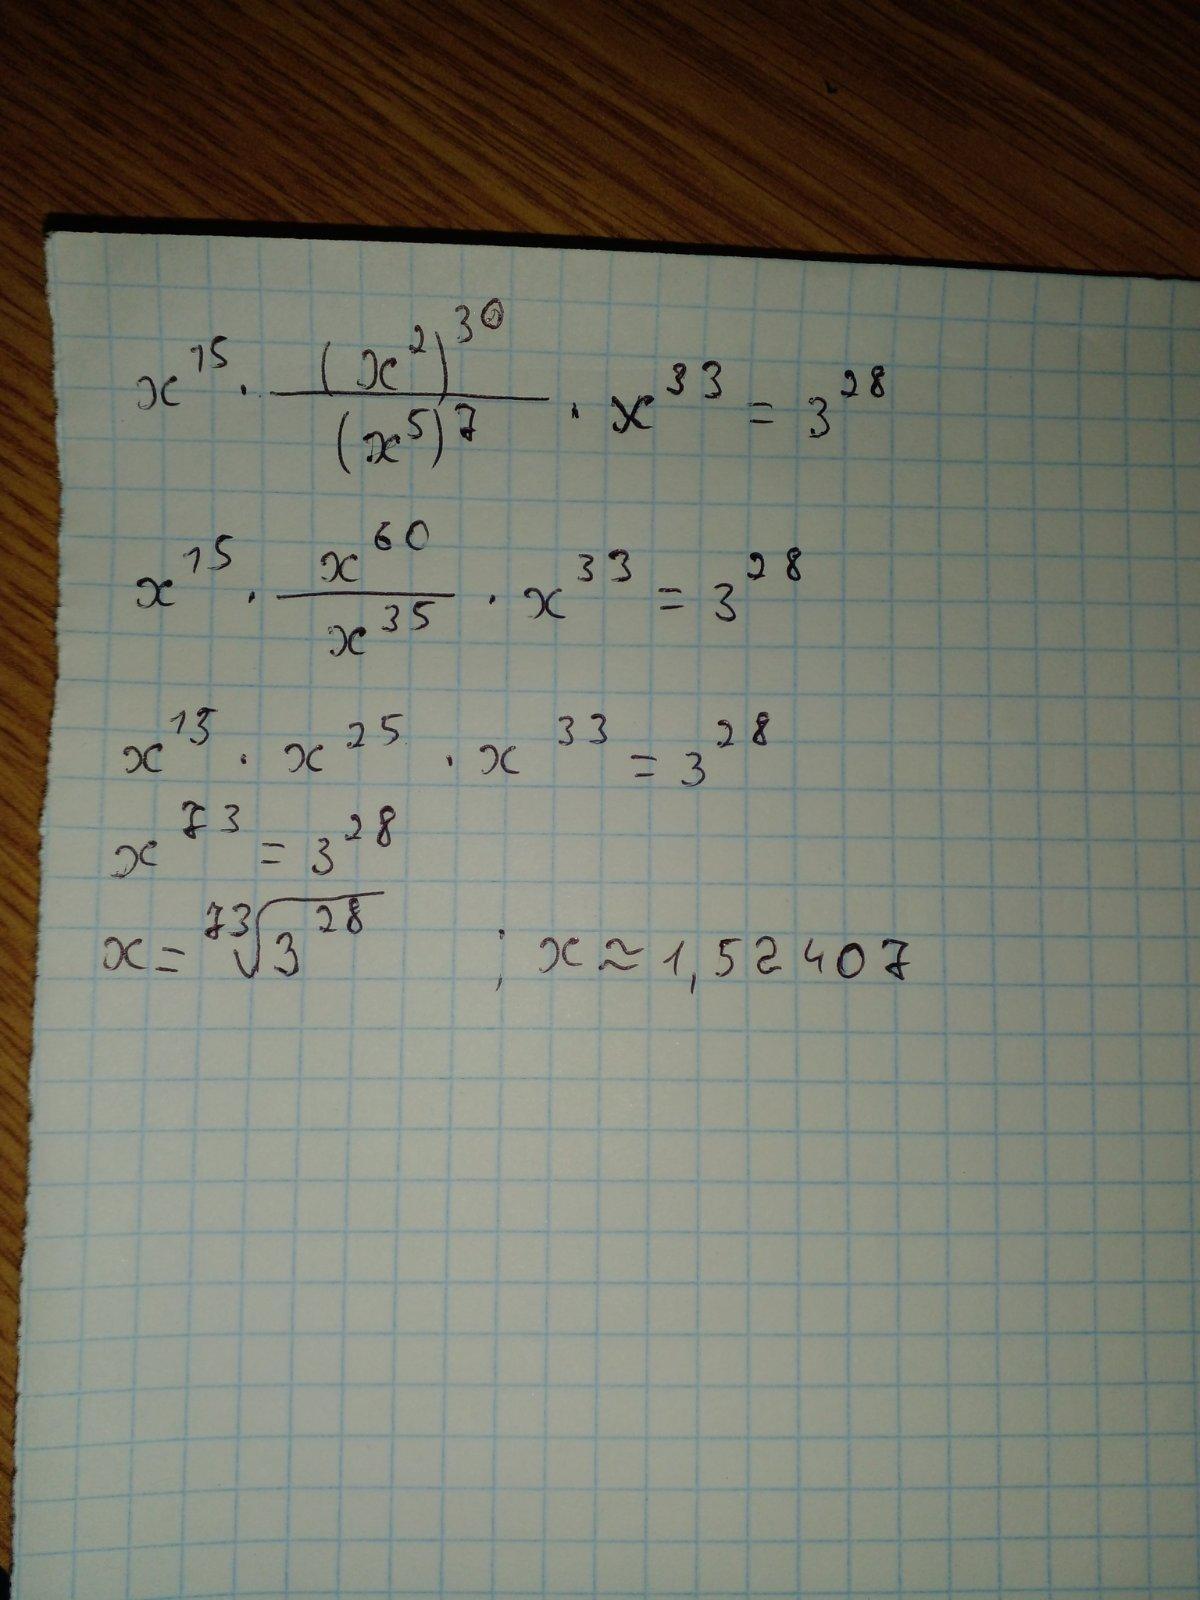 x^15 · (x^2)^30 / (x^5)^7 · x^33 = 3^28
x^15 · x^60 / x^35 · x^33 = 3^28
x^15 · x^25 · x^33 = 3^28
x^73 = 3^28
x = ⁷³√3^28 ; x ≈ 1,52407